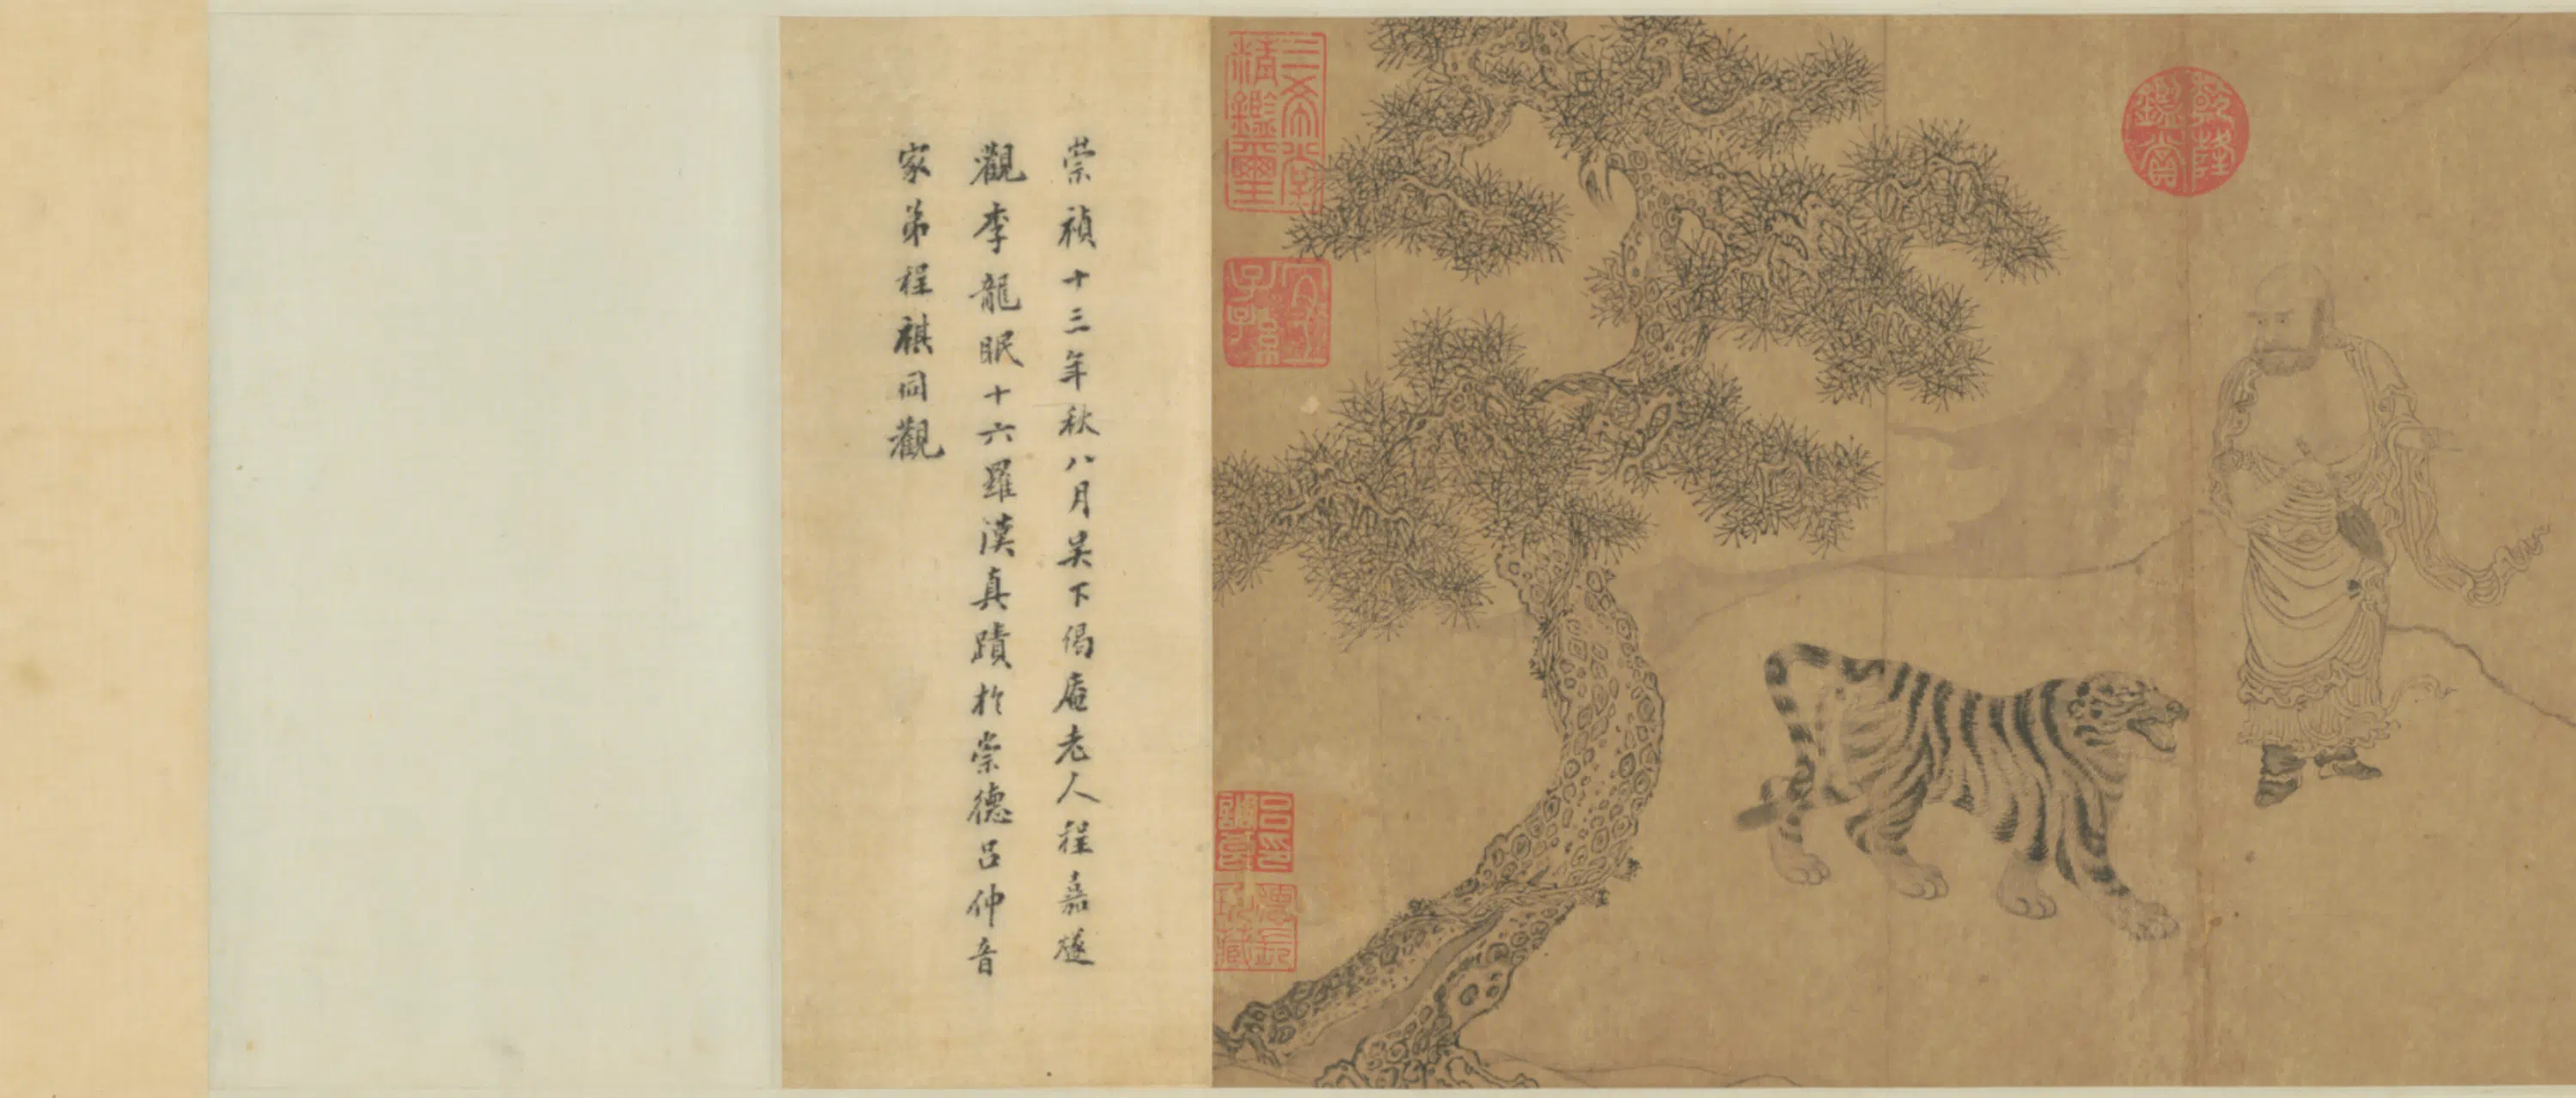 乾隆鑑賞
三希堂精鑑璽
宜子孫
崇禎十三年秋八月吴下偈庵老人程嘉燧
觀李龍眠十六羅漢真蹟於崇德吕仲音
家弟程祺同觀